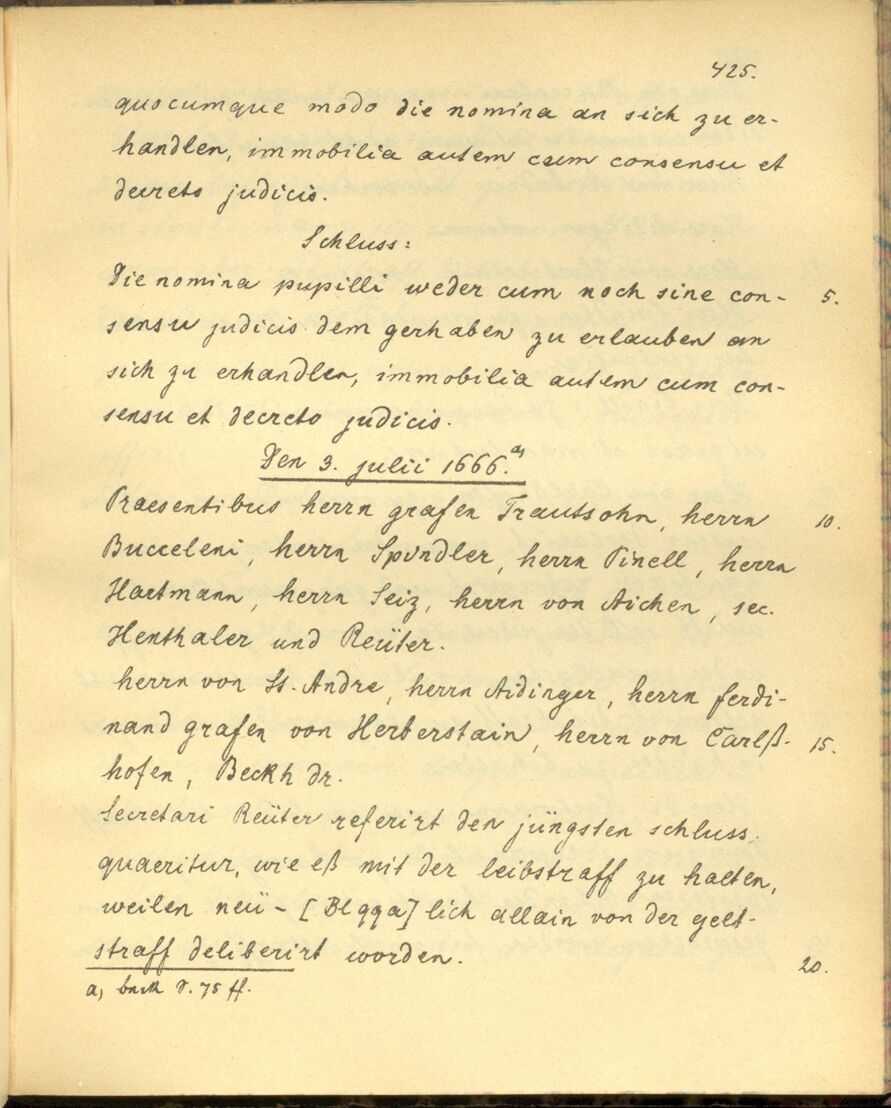 425.
quocumque modo die nomina an sich zu er-
handlen, immobilia autem cum consensu et
decreto judicis.
Schluss:
Die nomina pupilli weder cum noch sine con- 5.
sensu judicis dem gerhaben zu erlauben an
sich zu erhandlen, immobilia autem cum con-
sensu et decreto judicis.
Den 3. julii 1666.a)
Praesentibus herrn grafen Trautsohn, herrn 10.
Bucceleni, herrn Spindler, herrn Pinell, herrn
Hartmann, herrn Seiz, herrn von Aichen, sec.
Henthaler und Reüter.
herrn von St. Andre, herrn Aidinger, herrn ferdi-
nand grafen von Herberstain, herrn von Carlß- 15.
hofen, Beckh dr.
Secretari Reüter referirt den jüngsten schluss.
quaeritur, wie eß mit der leibstraff zu halten,
weilen neü-[Bl 99a]lich allain von der gelt-
straff deliberirt worden. 20.
a) 75 ff.